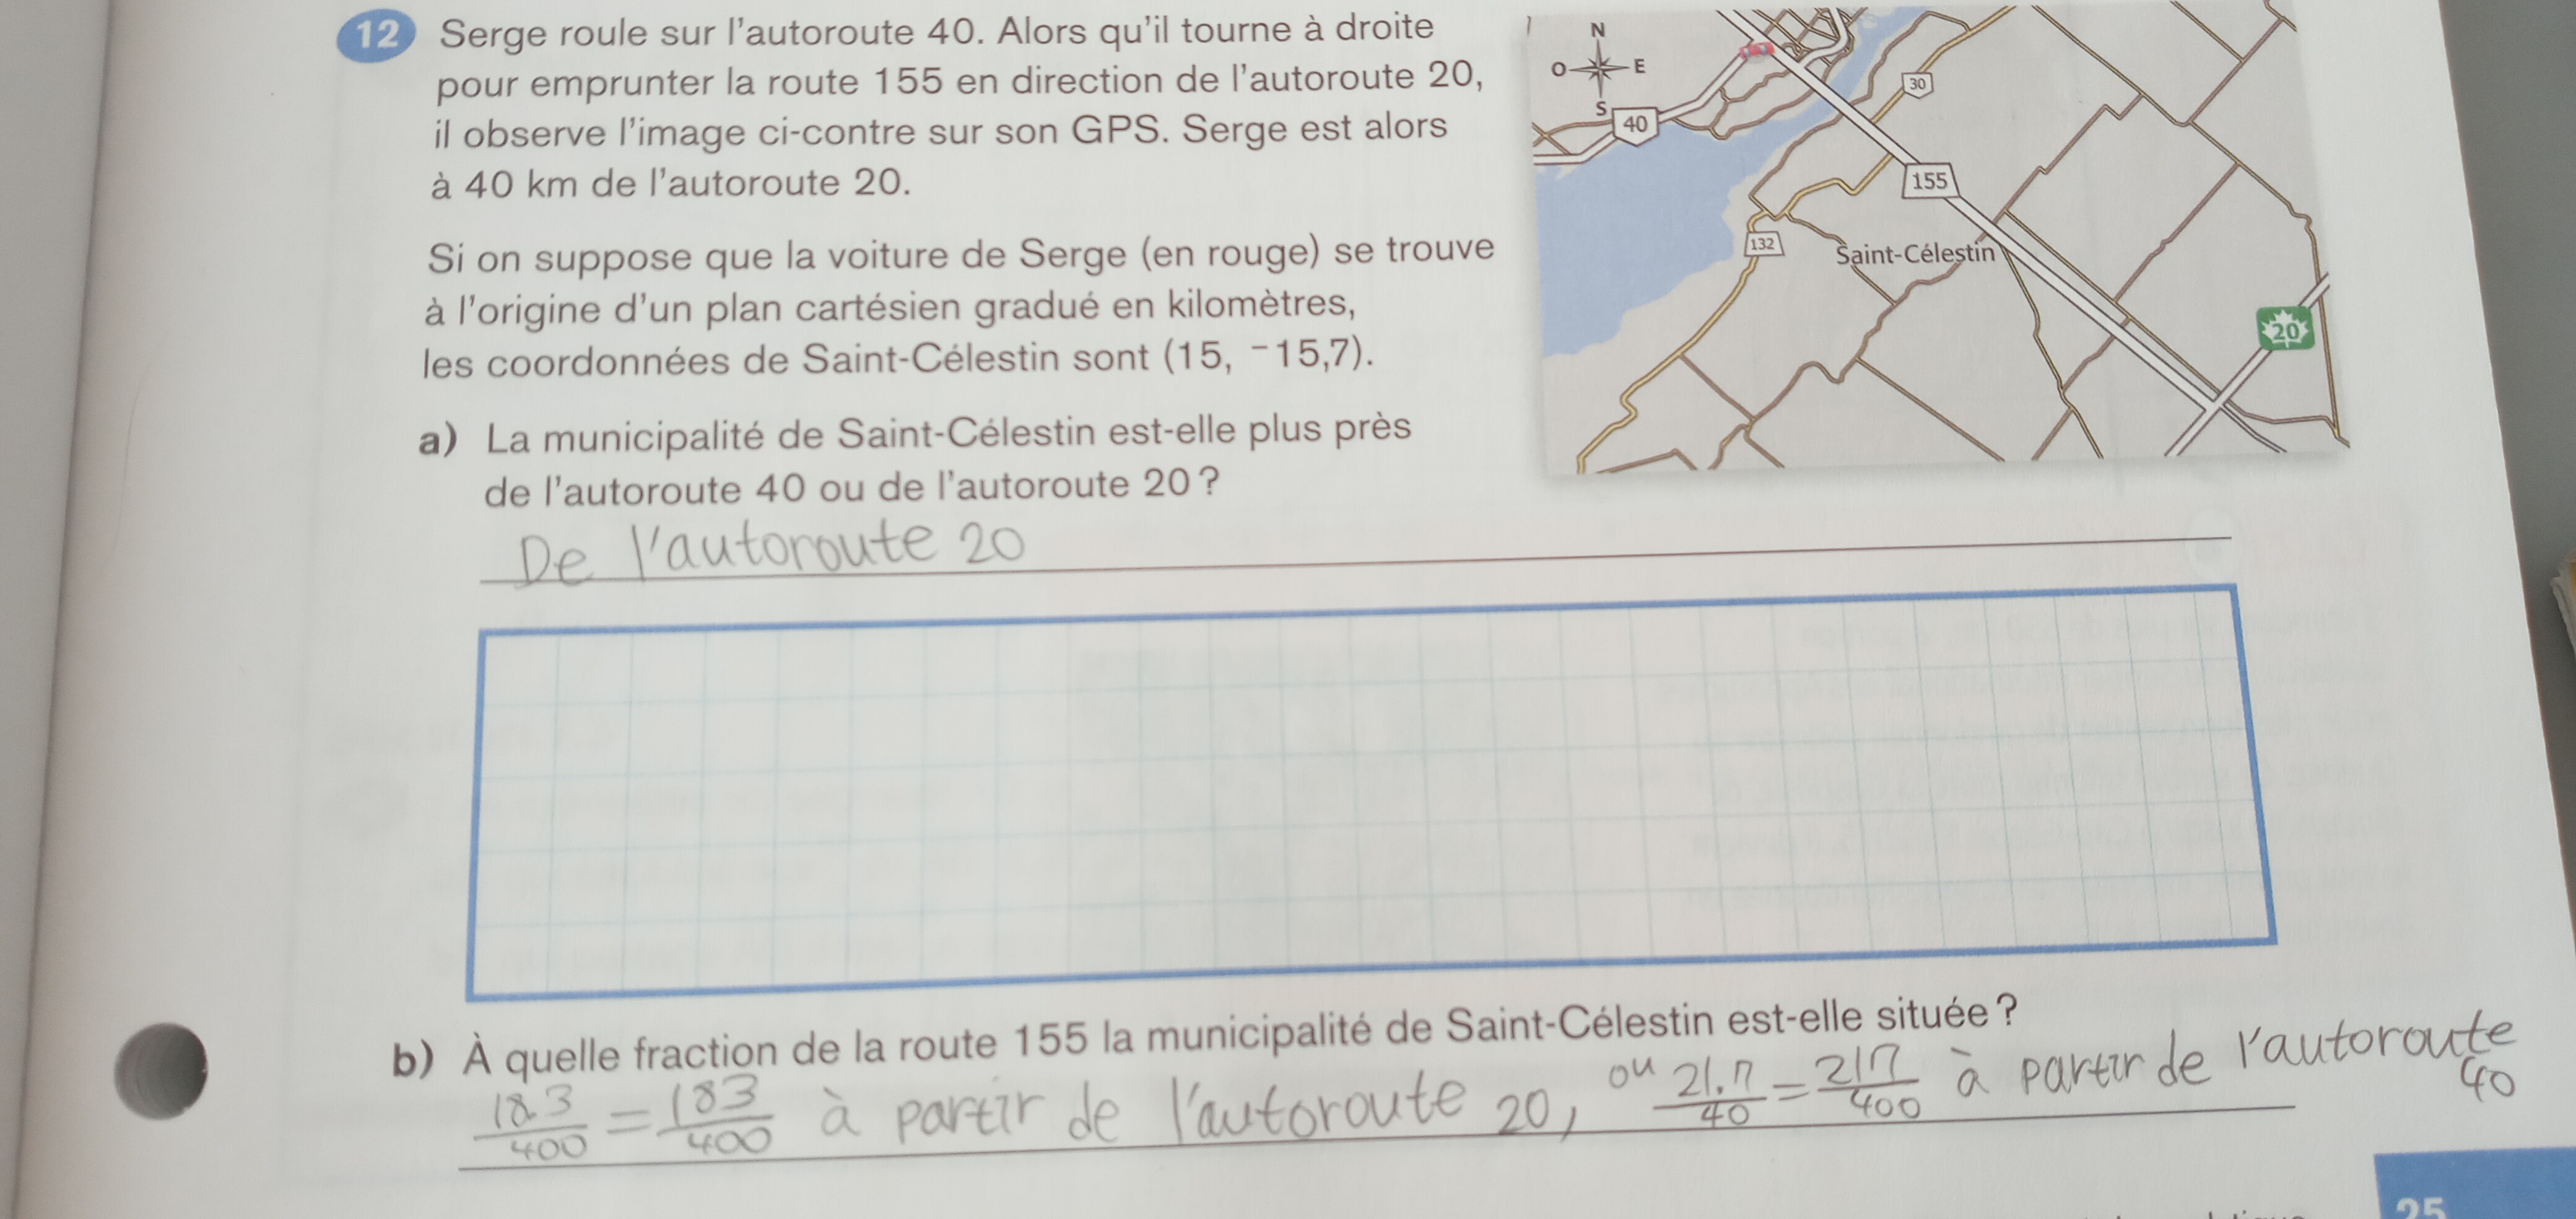 12 Serge roule sur l'autoroute 40. Alors qu'il tourne à droite
pour emprunter la route 155 en direction de l'autoroute 20,
il observe l'image ci-contre sur son GPS. Serge est alors
à 40 km de l'autoroute 20.
Si on suppose que la voiture de Serge (en rouge) se trouve
à l'origine d'un plan cartésien gradué en kilomètres,
les coordonnées de Saint-Célestin sont (15, −15,7).
N
O E
S
40
30
155
132
Saint-Célestin
20
a) La municipalité de Saint-Célestin est-elle plus près
de l'autoroute 40 ou de l'autoroute 20 ?
De l'autoroute 20
b) À quelle fraction de la route 155 la municipalité de Saint-Célestin est-elle située ?
18.3/400 = 183/400 à partir de l'autoroute 20, ou 21.7/40 = 217/400 à partir de l'autoroute
40
25